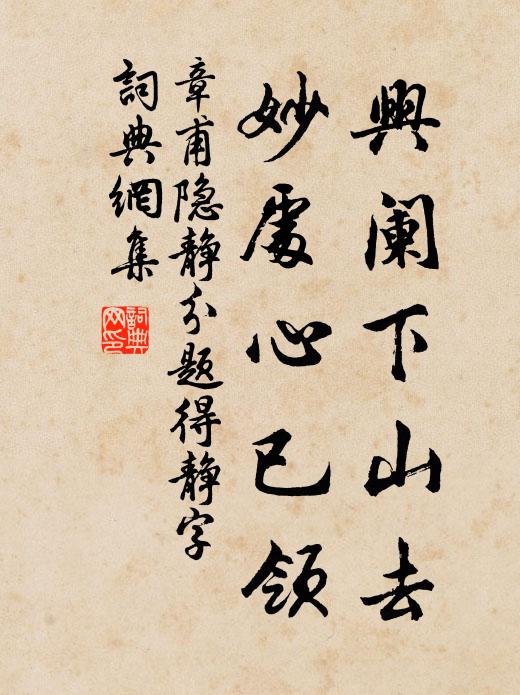 興阑下山去
妙處心已领
章甫隐靜分题得靜字
詞典網集
詞典网印